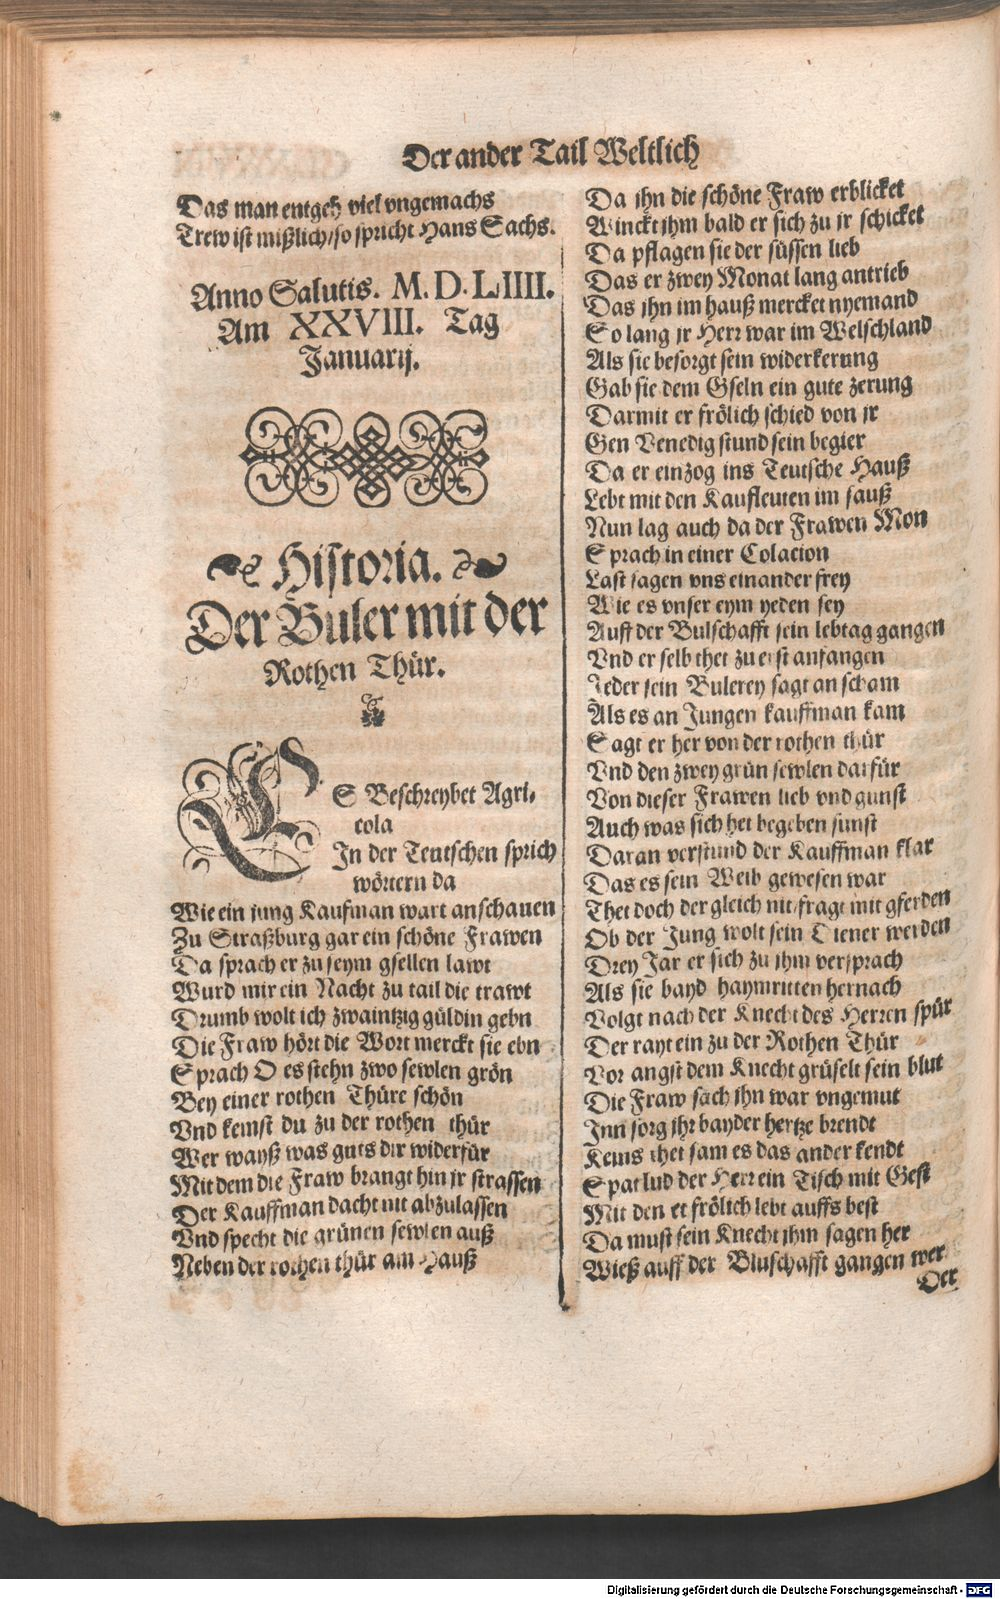 Der ander Tail Weltlich
Das man entgeh viel vngemachs
Trew ist mißlich/so spricht Hans Sachs.
Anno Salutis. M. D. LIIII.
Am XXVIII. Tag
Januarij.
Historia.
Der Buler mit der
Rothen Thür.
ES Beschreybet Agri-
cola
In der Teutschen sprich
wörtern da
Wie ein jung Kaufman wart anschauen
Zu Straßburg gar ein schöne Frawen
Da sprach er zu seym gsellen lawt
Wurd mir ein Nacht zu tail die trawt
Drumb wolt ich zwaintzig güldin gebn
Die Fraw hört die Wort merckt sie ebn
Sprach O es stehn zwo sewlen grön
Bey einer rothen Thüre schön
Vnd kemst du zu der rothen thür
Wer wayß was guts dir widerfür
Mit dem die Fraw brangt hin jr strassen
Der Kauffman dacht nit abzulassen
Vnd specht die grünen sewlen auß
Neben der rothen thür am Hauß
Da jhn die schöne Fraw erblicket
Winckt jhm bald er sich zu jr schicket
Da pflagen sie der süssen lieb
Das er zwey Monat lang antrieb
Das jhn im hauß mercket nyemand
So lang jr Herr war im Welschland
Als sie besorgt sein widerkerung
Gab sie dem Gseln ein gute zerung
Darmit er frölich schied von jr
Gen Venedig stund sein begier
Da er einzog ins Teutsche Hauß
Lebt mit den Kaufleuten im sauß
Nun lag auch da der Frawen Mon
Sprach in einer Colacion
Last sagen vns einander frey
Wie es vnser eym yeden sey
Auff der Bulschafft sein lebtag gangen
Vnd er selb thet zu erst anfangen
Jeder sein Bulerey sagt an scham
Als es an Jungen kauffman kam
Sagt er her von der rothen thür
Vnd den zwey grün sewlen darfür
Von dieser Frawen lieb vnd gunst
Auch was sich het begeben sunst
Daran verstund der Kauffman klar
Das es sein Weib gewesen war
Thet doch der gleich nit/fragt mit gferden
Ob der Jung wolt sein Diener werden
Drey Jar er sich zu jhm versprach
Als sie bayd haymritten hernach
Volgt nach der Knecht des Herren spür
Der rayt ein zu der Rothen Thür
Vor angst dem Knecht grüselt sein blut
Die Fraw sach jhn war vngemut
Inn sorg jhr bayder hertze brendt
Keins thet sam es das ander kendt
Spat lud der Herr ein Tisch mit Gest
Mit den er frölich lebt auffs best
Da must sein Knecht jhm sagen her
Wieß auff der Bluschafft gangen wer
Der
Digitalisierung gefördert durch die Deutsche Forschungsgemeinschaft - DFG